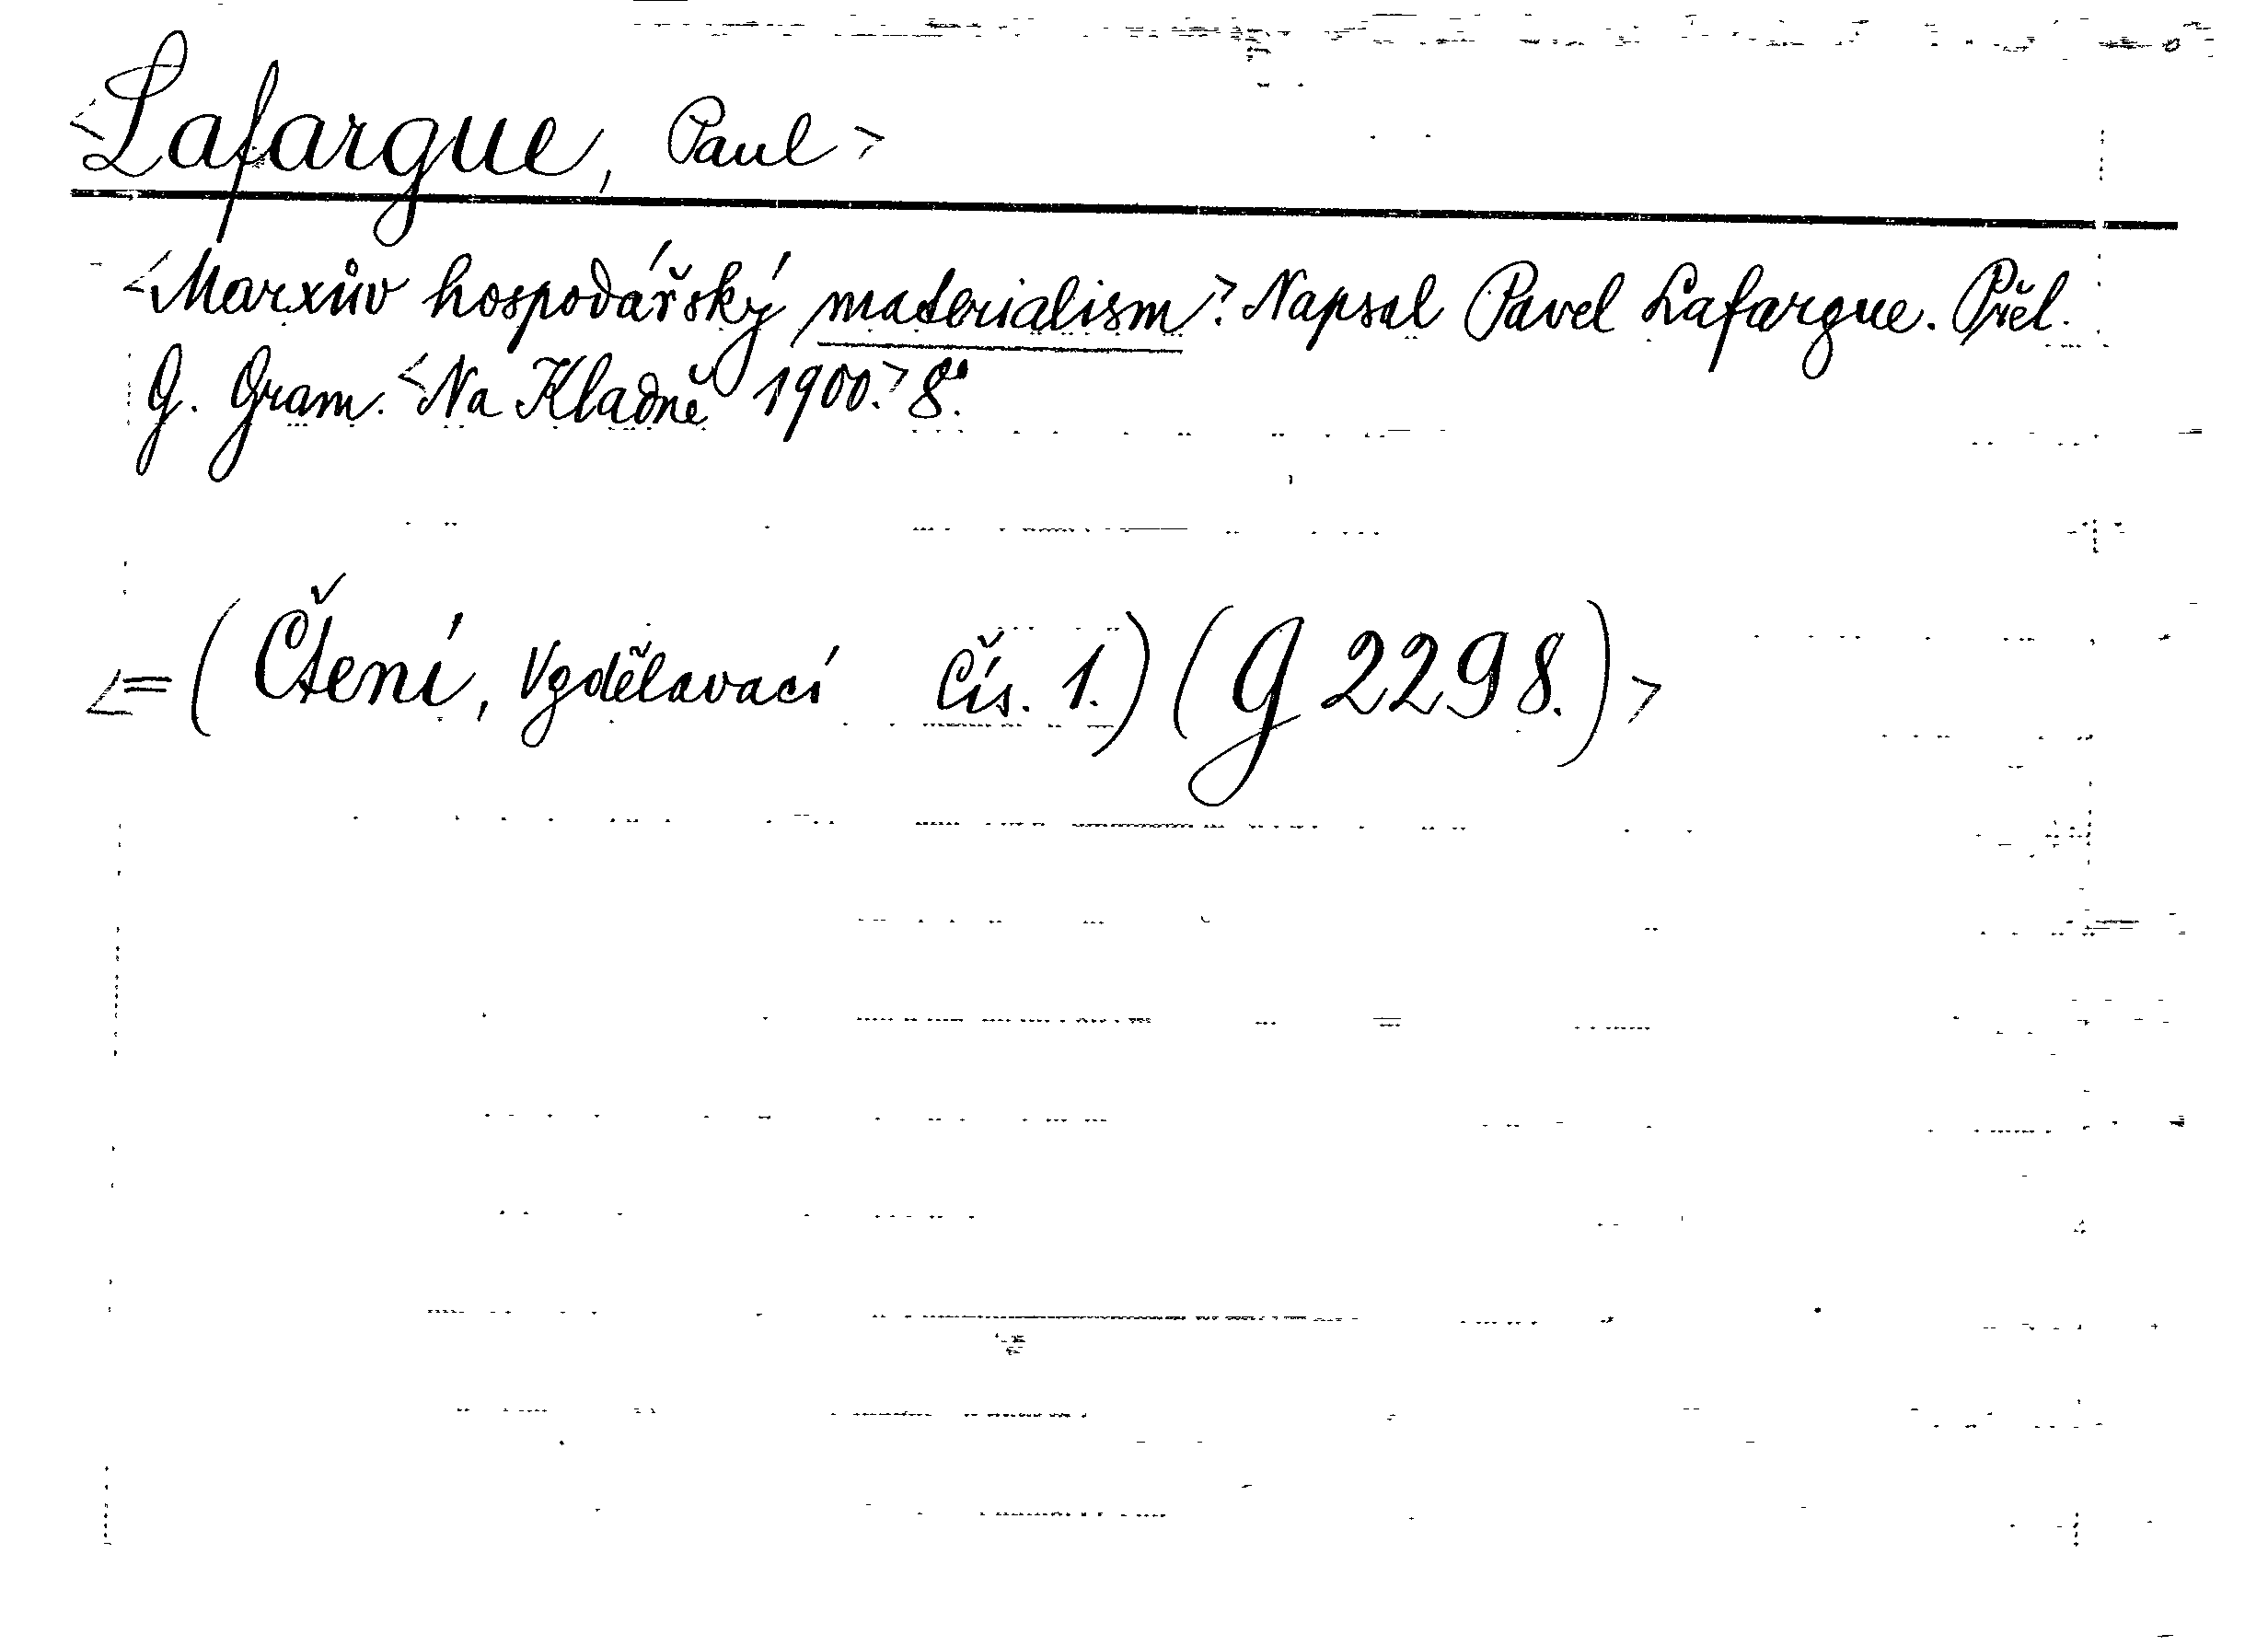 <Lafargue, Paul>
<Marxův hospodářský materialism>. Napsal Pavel Lafargue. Přel.
G. Gram. <Na Kladně 1900.> 8°.
<=(Čtení, Vzdělavací Čís. 1.) (G 2298.)>